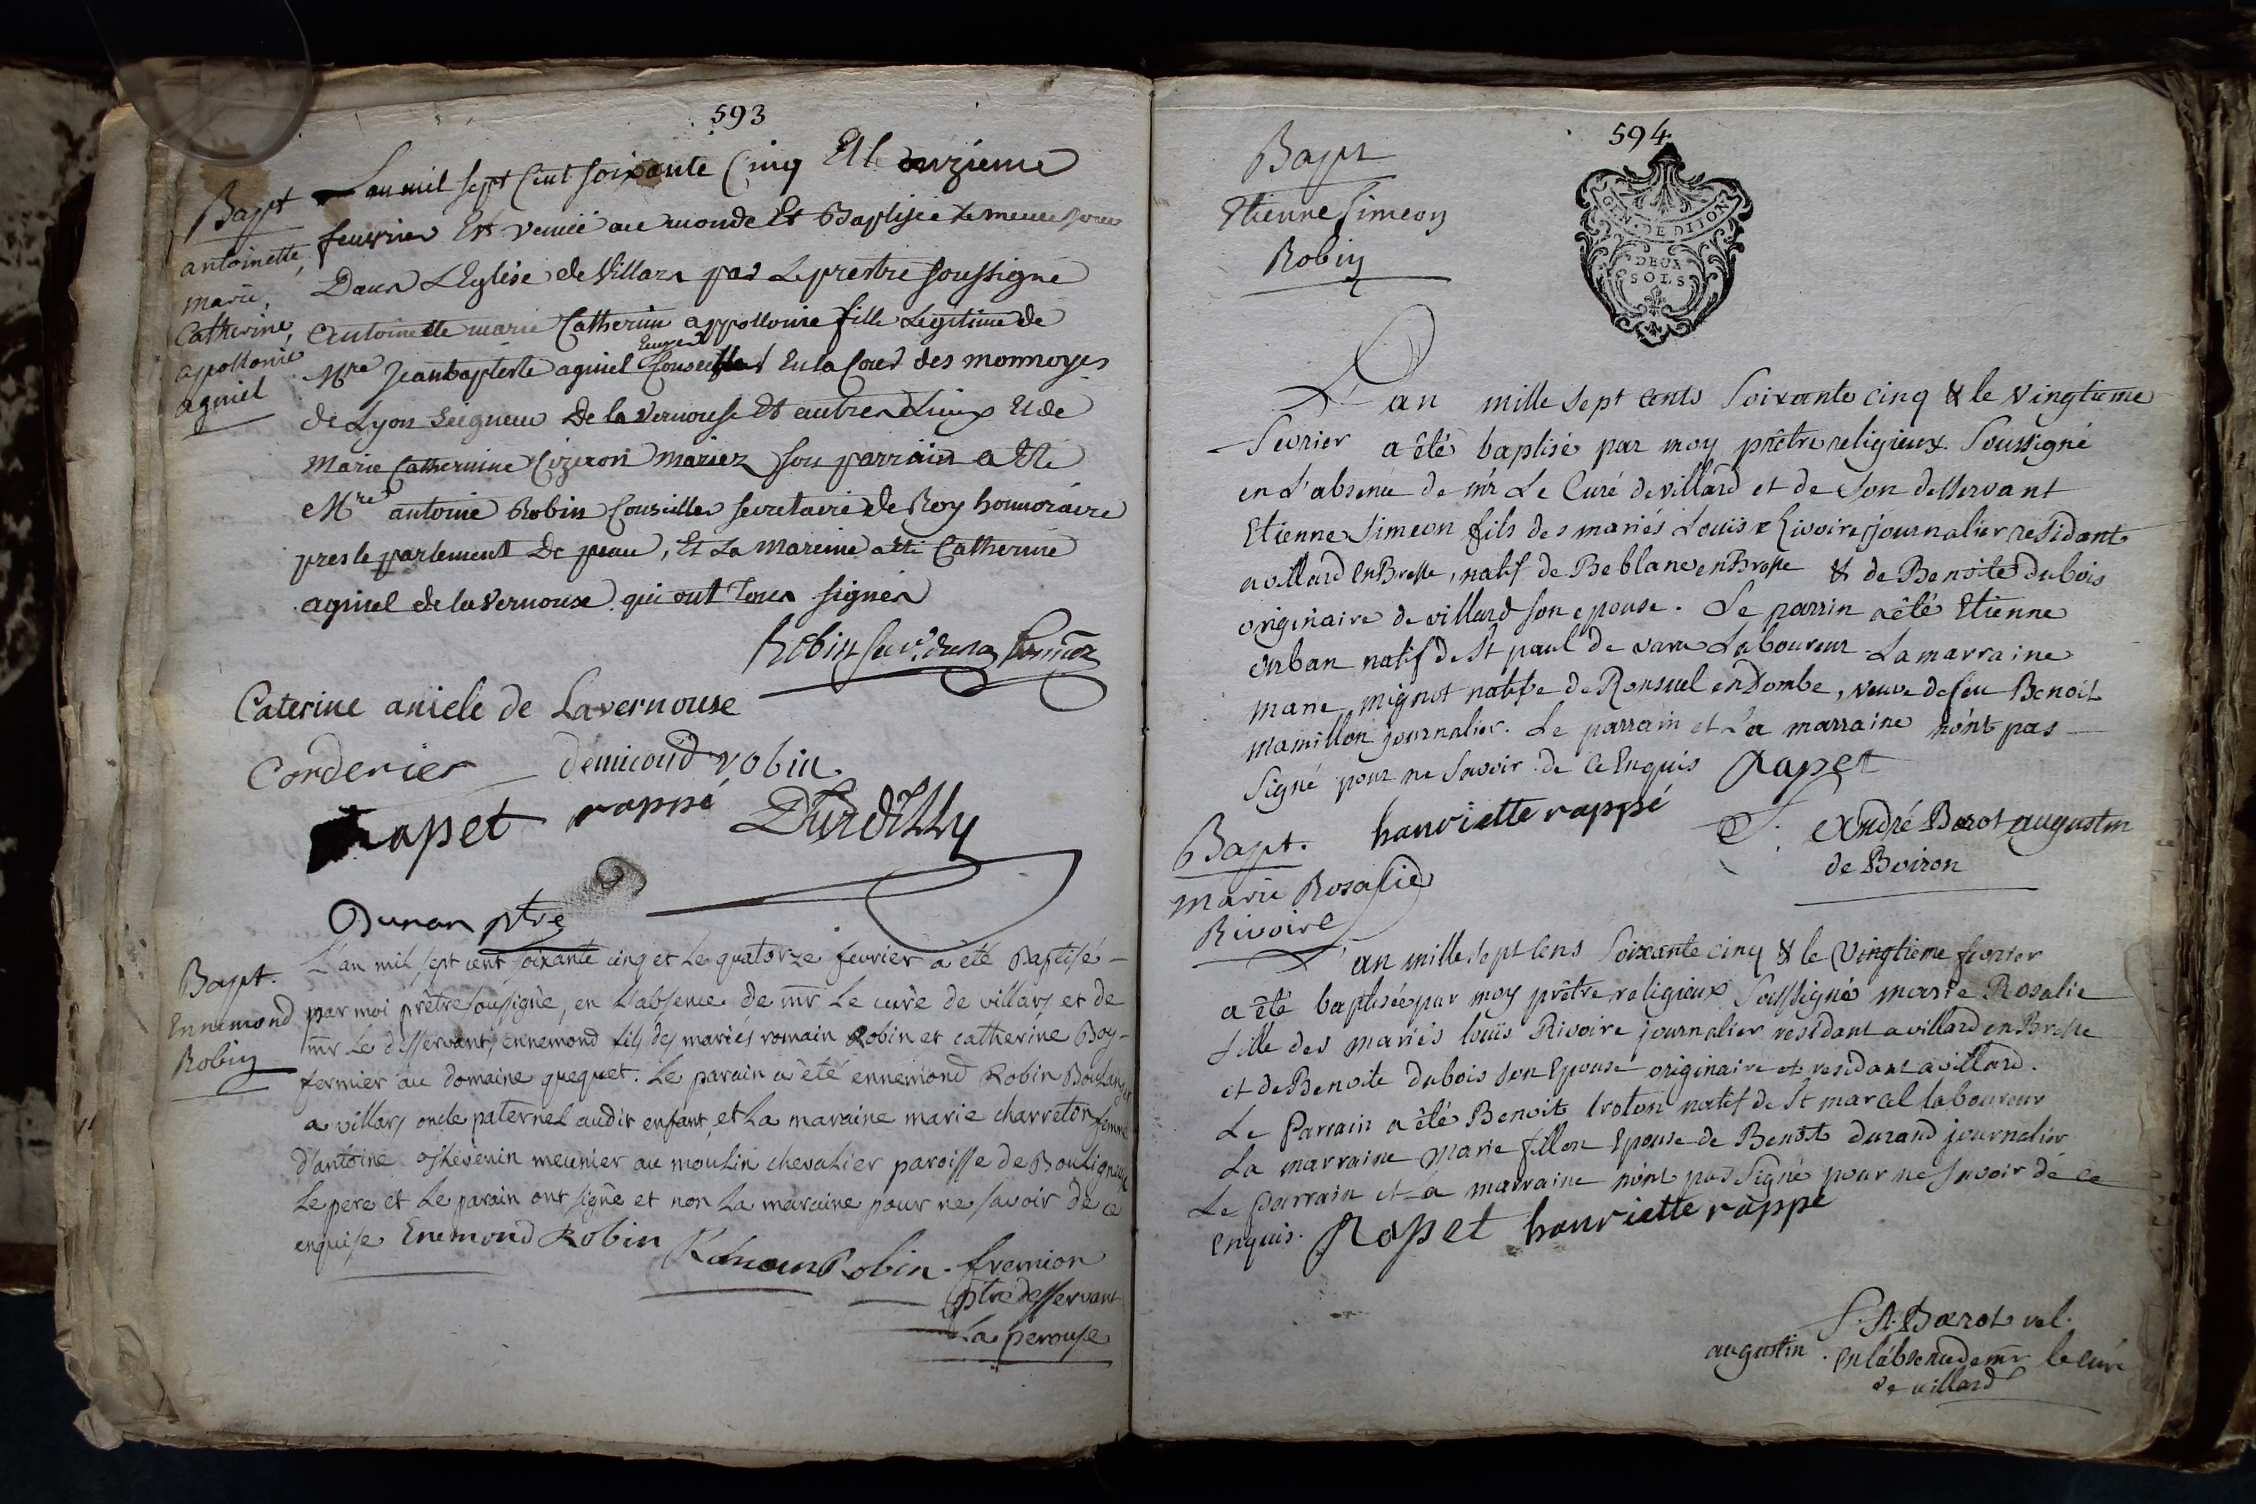 593
Bapt
antoinette
marie,
Catherine,
appollonie
agniel
L'an mil sept Cent soixante Cinq Et le onzieme
feuvrier Est venüe au monde Et Baptisée le meme jour
Dans L'Eglise de Villars par Le prestre soussigné
Antoinette marie Catherine appollonie fille Legitime de
Mre Jean baptiste agniel Conseiller En la Cour des monnoyes
de Lyon Seigneur De la Vernouse Et autres Lieux Et de
Marie Catherine Cizeron mariez son parrain a Eté
Mre antoine Robin Conseiller secretaire de Roy honnoraire
pres le parlement De peau, Et La Mareine a été Catherine
agniel de la Vernouse qui ont Tous signés
Robin
Caterine aniele de Lavernouse
Corderier demicoud robin
rapet rappé Durdilly
Dunan ptre
Bapt.
Ennemond
Robin
L'an mil sept cent soixante cinq et Le quatorze fevrier a été Baptisé
par moi prêtre soussigné, en L'absence de mr Le curé de villars et de
mr Le desservant, ennemond fils des mariés romain Robin et catherine Boy
fermier au domaine quequet. Le parain a été ennemond Robin Boulanger
a villars oncle paternel audit enfant, et La maraine marie charreton femme
d'antoine Thevenin meunier au moulin chevalier paroisse de Bouligneux
Le pere et Le parain ont signé et non La maraine pour ne savoir de ce
enquise Enemond Robin
Romain Robin fremion
ptre desservant
La perouse
594
GEN. DE DIJON
DEUX
SOLS
Bapt
Etienne simeon
Robin
L'an mille sept cents soixante cinq & le vingtieme
Fevrier a été baptisé par moy prêtre religieux soussigné
en L'absence de mr Le Curé de villard et de son desservant
Etienne Simeon fils des mariés Louis Rivoire journalier residant
a villard en Bresse, natif de Beblane en Bresse & de Benoite dubois
originaire de villard son epouse. Le parrin a été Etienne
Urban natif de St paul de varu Laboureur. La marraine
marie mignot native de Ronsuel en Dombe, veuve de feu Benoit
mamillon journalier. Le parrain et La marraine n'ont pas
signé pour ne savoir de ce Enquis Rapet
henriette rappé
F. André Barot augustin
de Boiron
Bapt.
Marie Rosalie
Rivoire
L'an mille sept cens soixante cinq & le Vingtieme fevrier
a été baptisée par moy prêtre religieux soussigné marie Rosalie
fille des mariés louis Rivoire journalier residant a villard en Bresse
et de Benoite dubois son Epouse originaire et residant a villard.
Le Parrain a été Benoit troton natif de St marcel laboureur
La marraine Marie fillon Epouse de Benoit durand journalier
Le parrain et La marraine n'ont pas signé pour ne savoir de ce
enquis. Rapet henriette rappé
F. A. Barot rel.
augustin. en l'absence de mr le curé
de villard